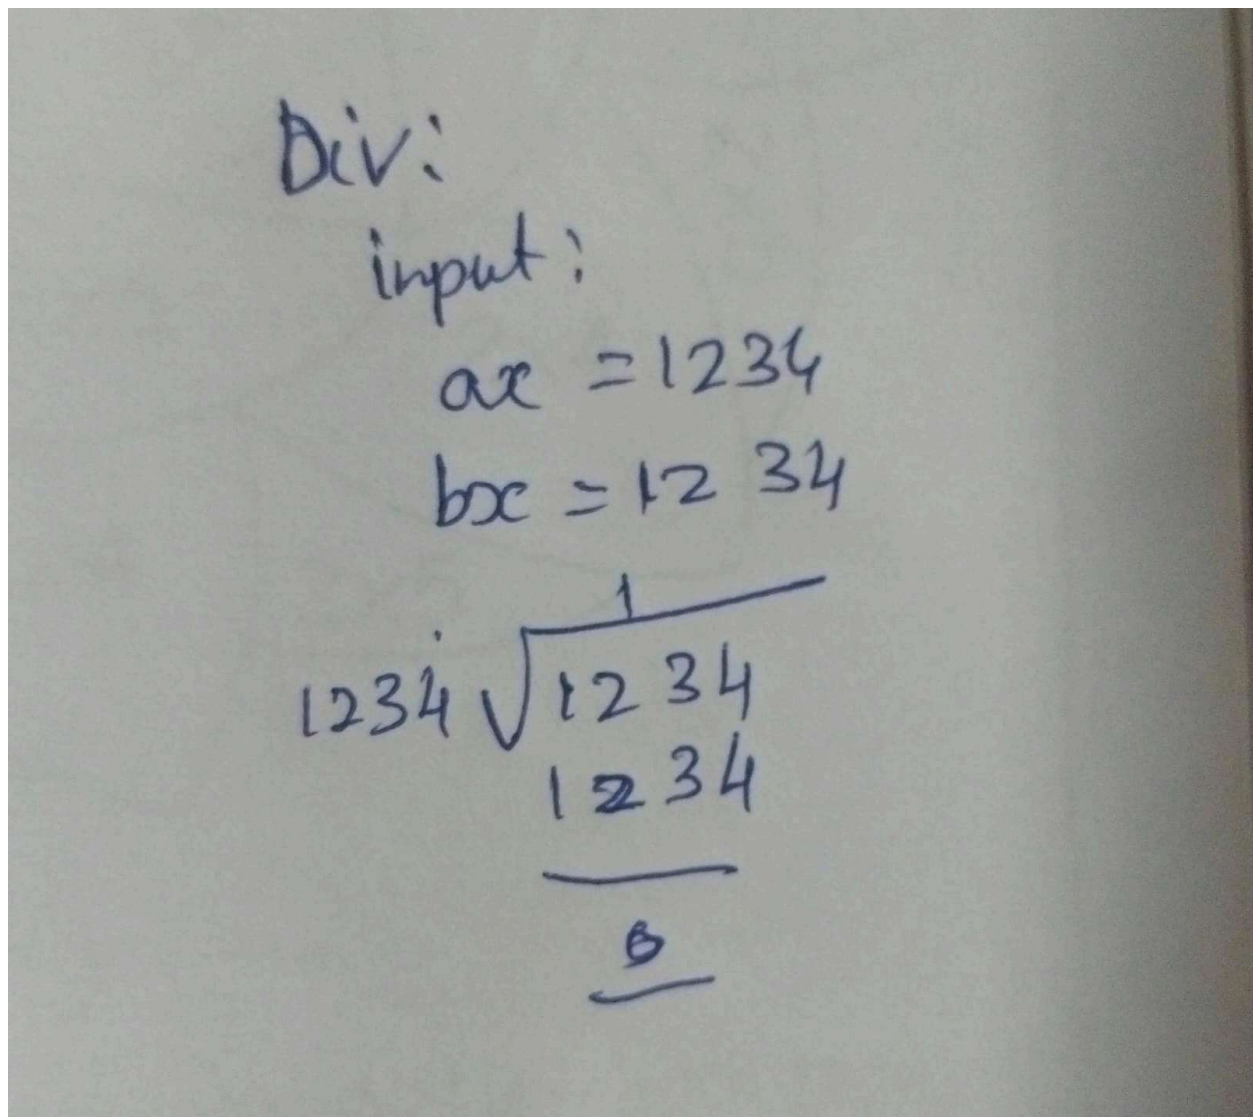 Div:
input:
ax = 1234
bx = 1234
1
1234 √1234
1234
0